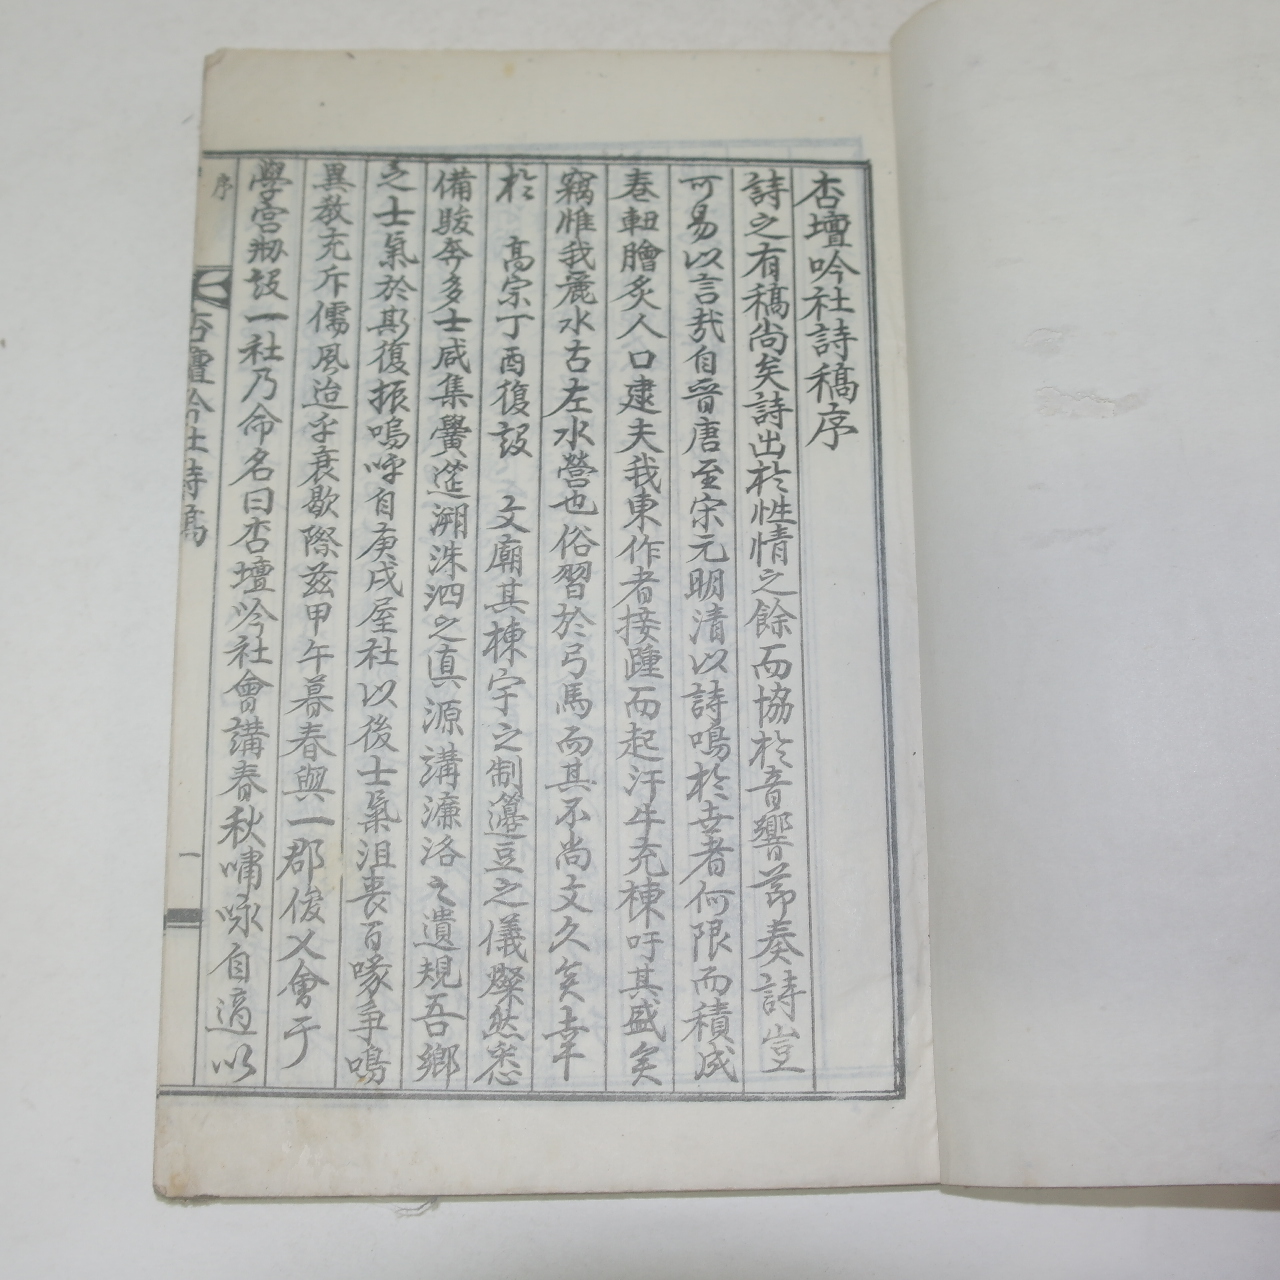 杏壇吟社詩稿序
詩之有稿尚矣詩出於性情之餘而協於音響節奏詩豈
可易以言哉自晋唐至宋元明清以詩鳴於世者何限而積成
卷軸膾炙人口建夫我東作者接踵而起汗牛充棟吁其盛矣
竊惟我麗水古左水營也俗習於弓馬而其不尚文久矣幸
於 高宗丁酉復設 文廟其棟宇之制籩豆之儀燦然悉
備駿奔多士咸集黌筵溯洙泗之眞源講濂洛之遺規吾鄉
之士氣於斯復振嗚呼自庚戌屋社以後士氣沮喪百喙爭鳴
異教充斥儒風迨乎衰歇際玆甲午暮春與一郡俊乂會于
學宮刱設一社乃命名曰杏壇吟社會講春秋嘯咏自適以
序
杏壇吟社詩稿
一